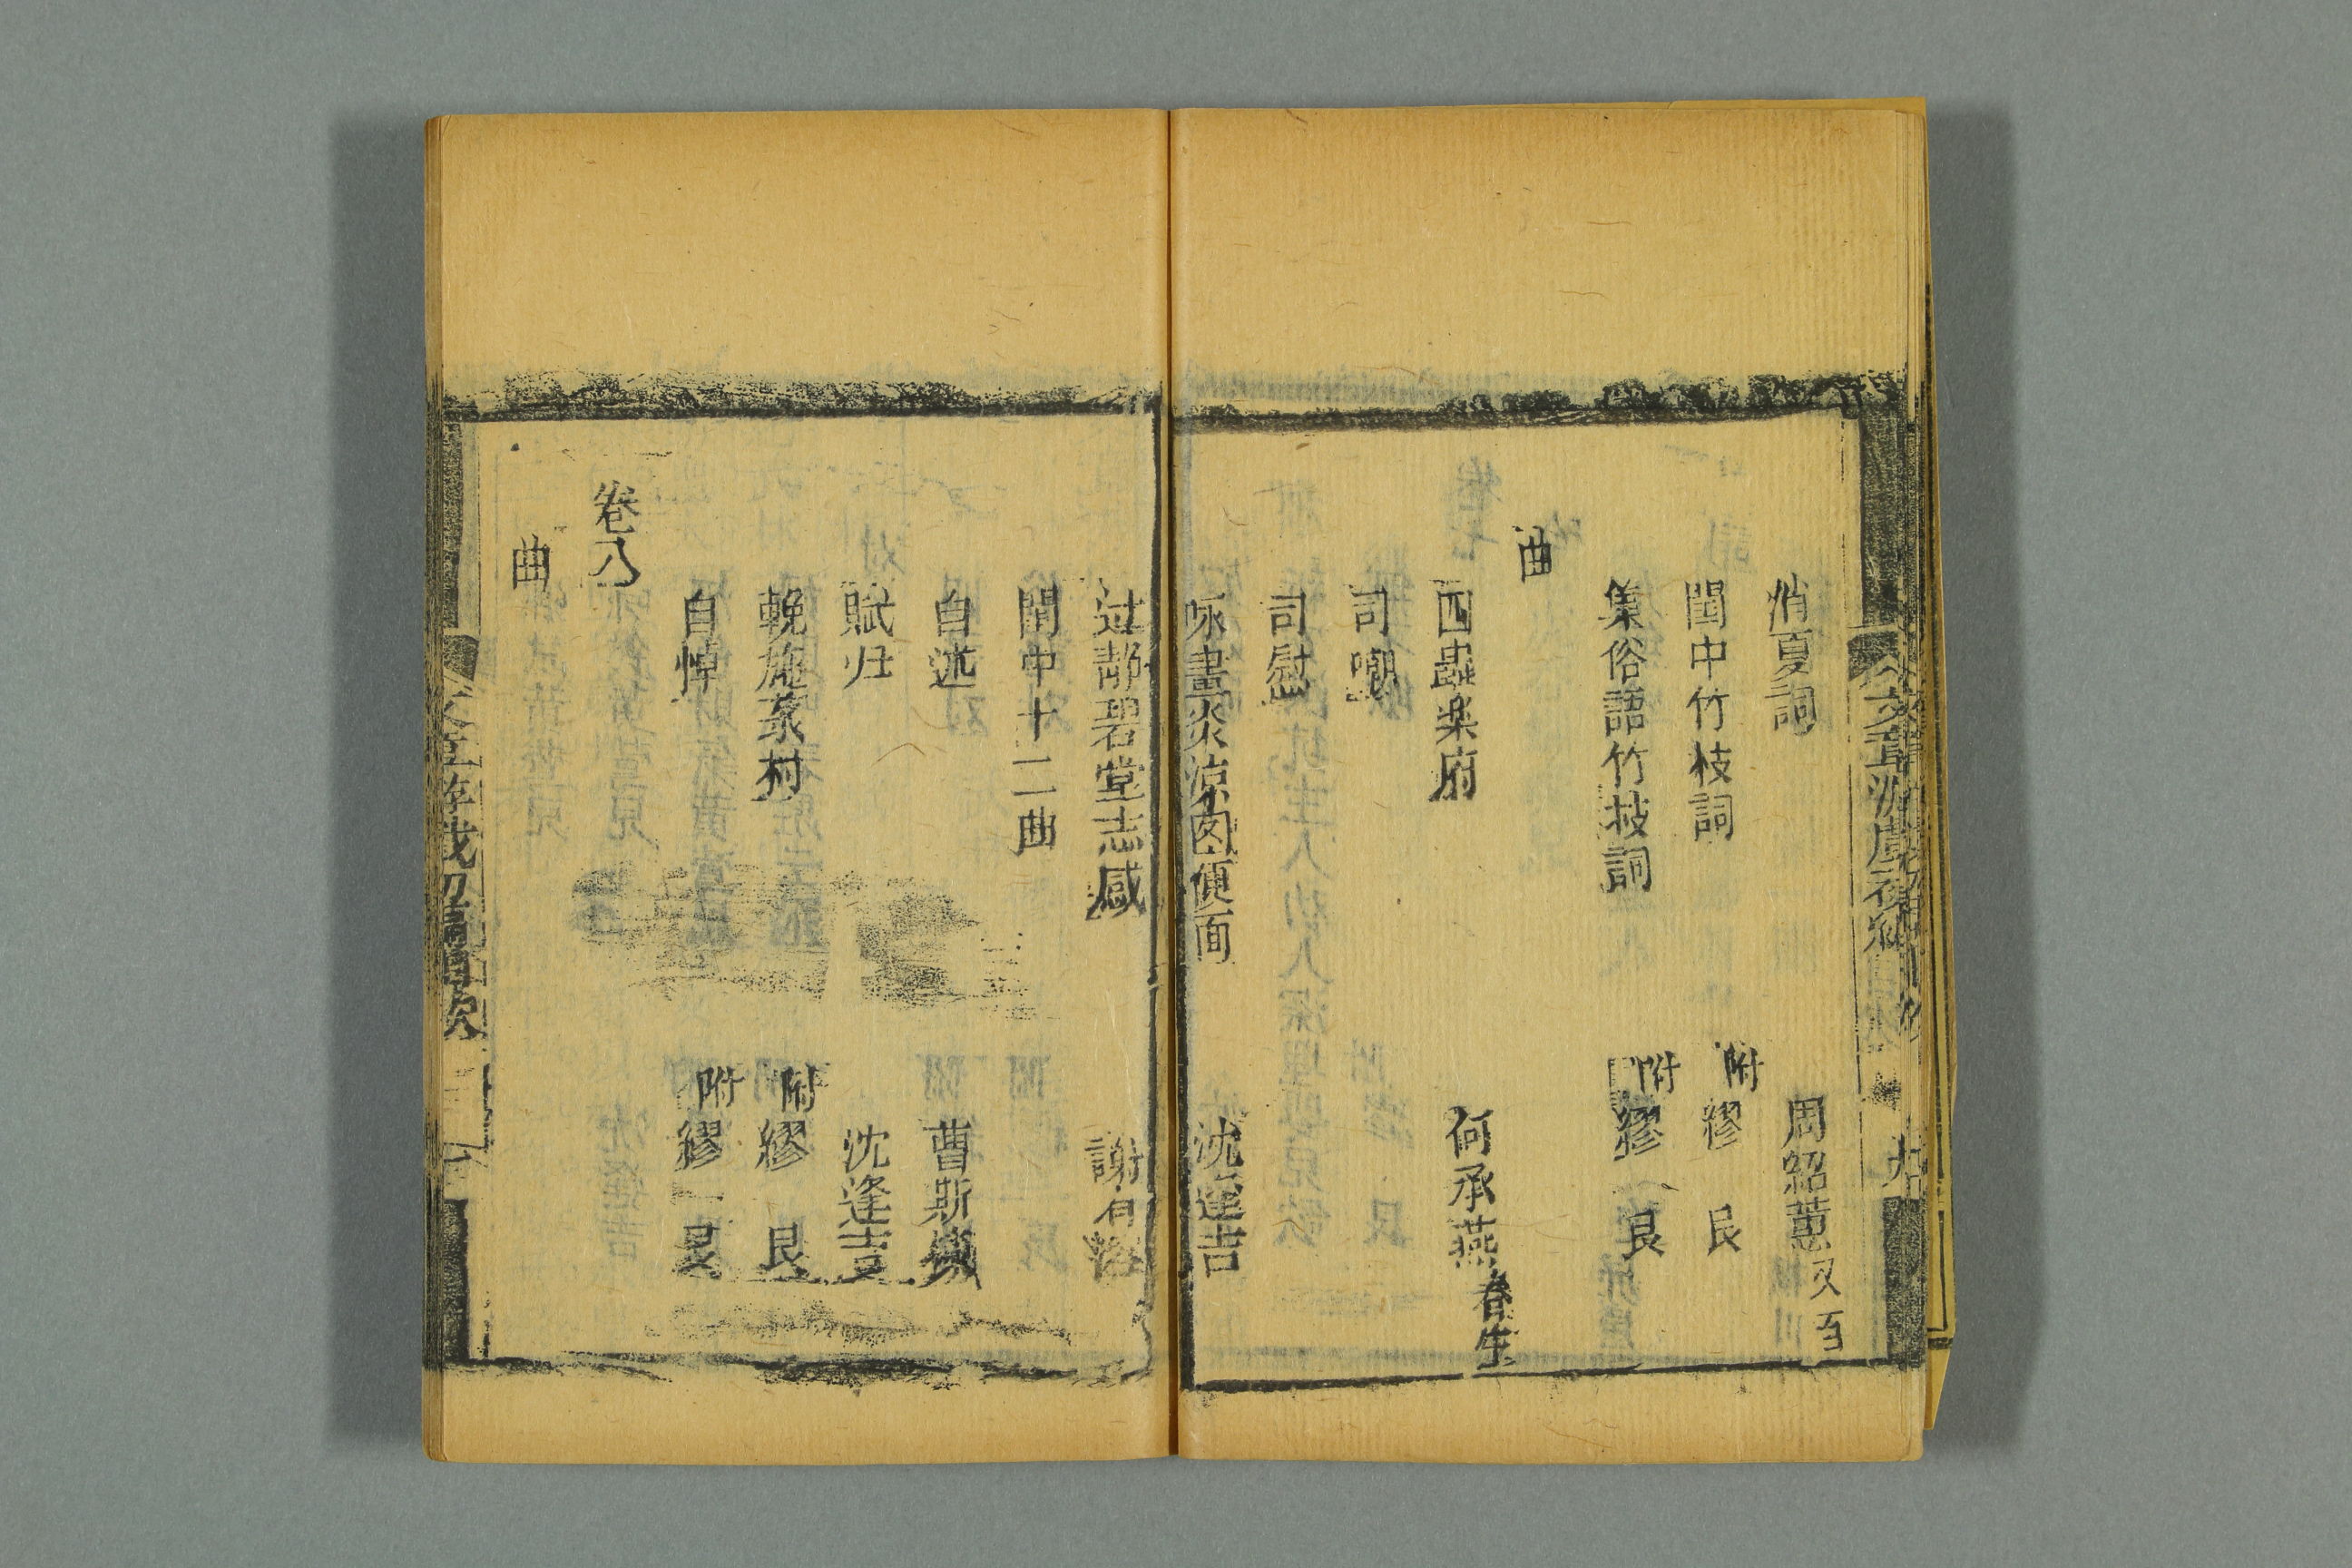 消夏詞 周紹蕙 又百
閨中竹枝詞 附繆 艮
集俗語竹枝詞 附繆 艮
曲
四蟲楽府 何承燕 春生
司嘲
司慰
咏畫炎涼图便面 沈逢吉
九
过靜碧堂志感 謝
閨中十二曲
自述 曹斯
賦归 沈逢吉
輓施彖村 附繆 艮
自悼 附繆 艮
卷八
曲